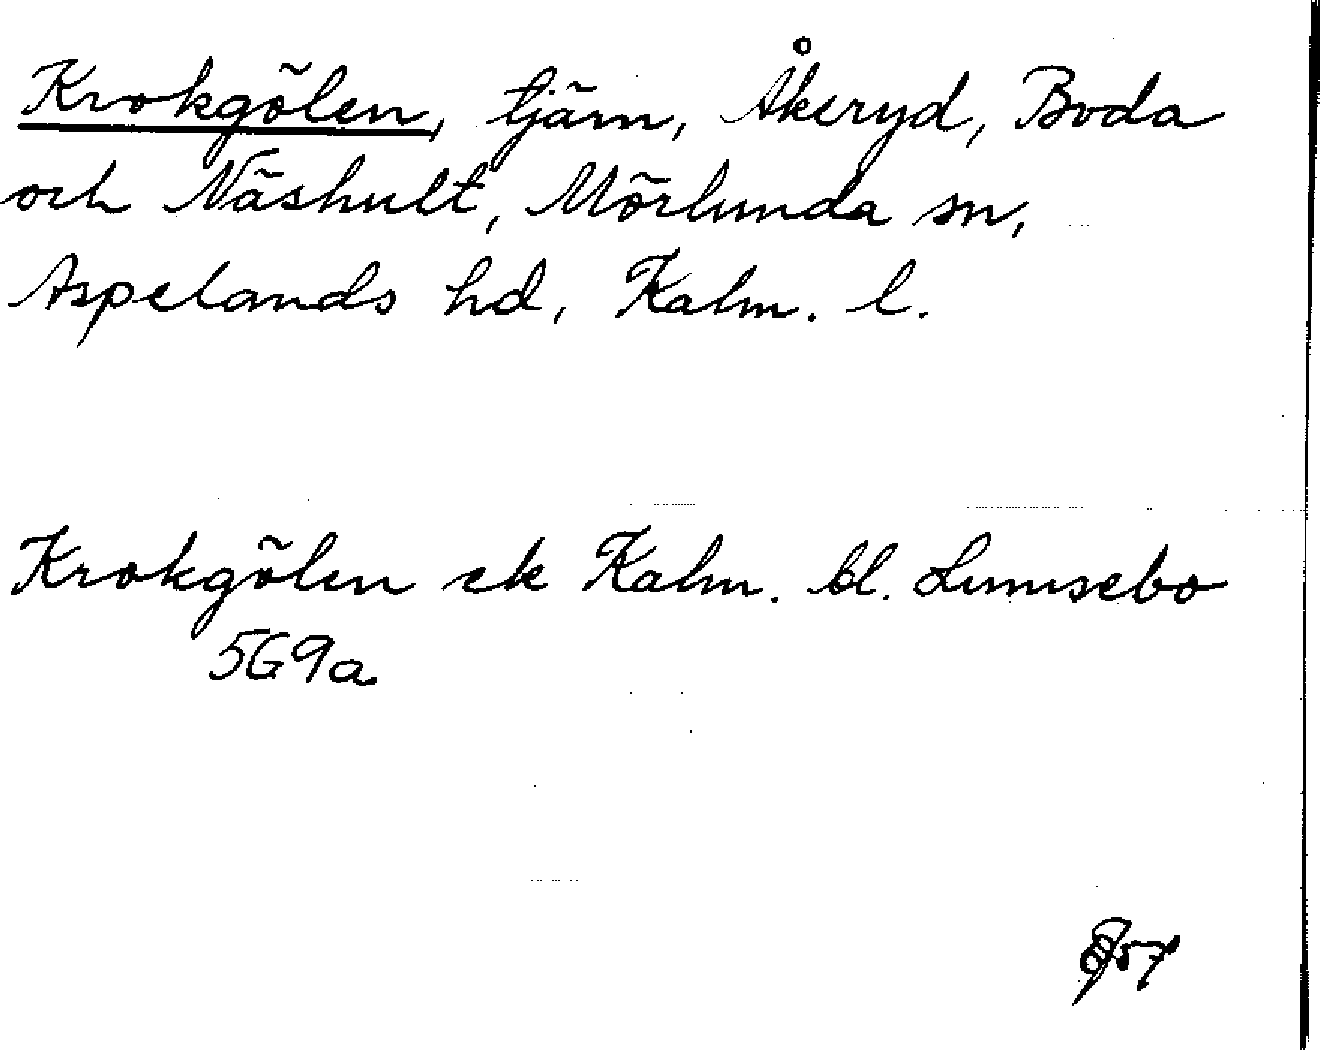 Krokgölen, tjärn, Åkeryd, Boda
och Näshult, Mörlunda sn,
Aspelands hd, Kalm. l.
Krokgölen ek Kalm. bl. Lunnsebo
5G9a